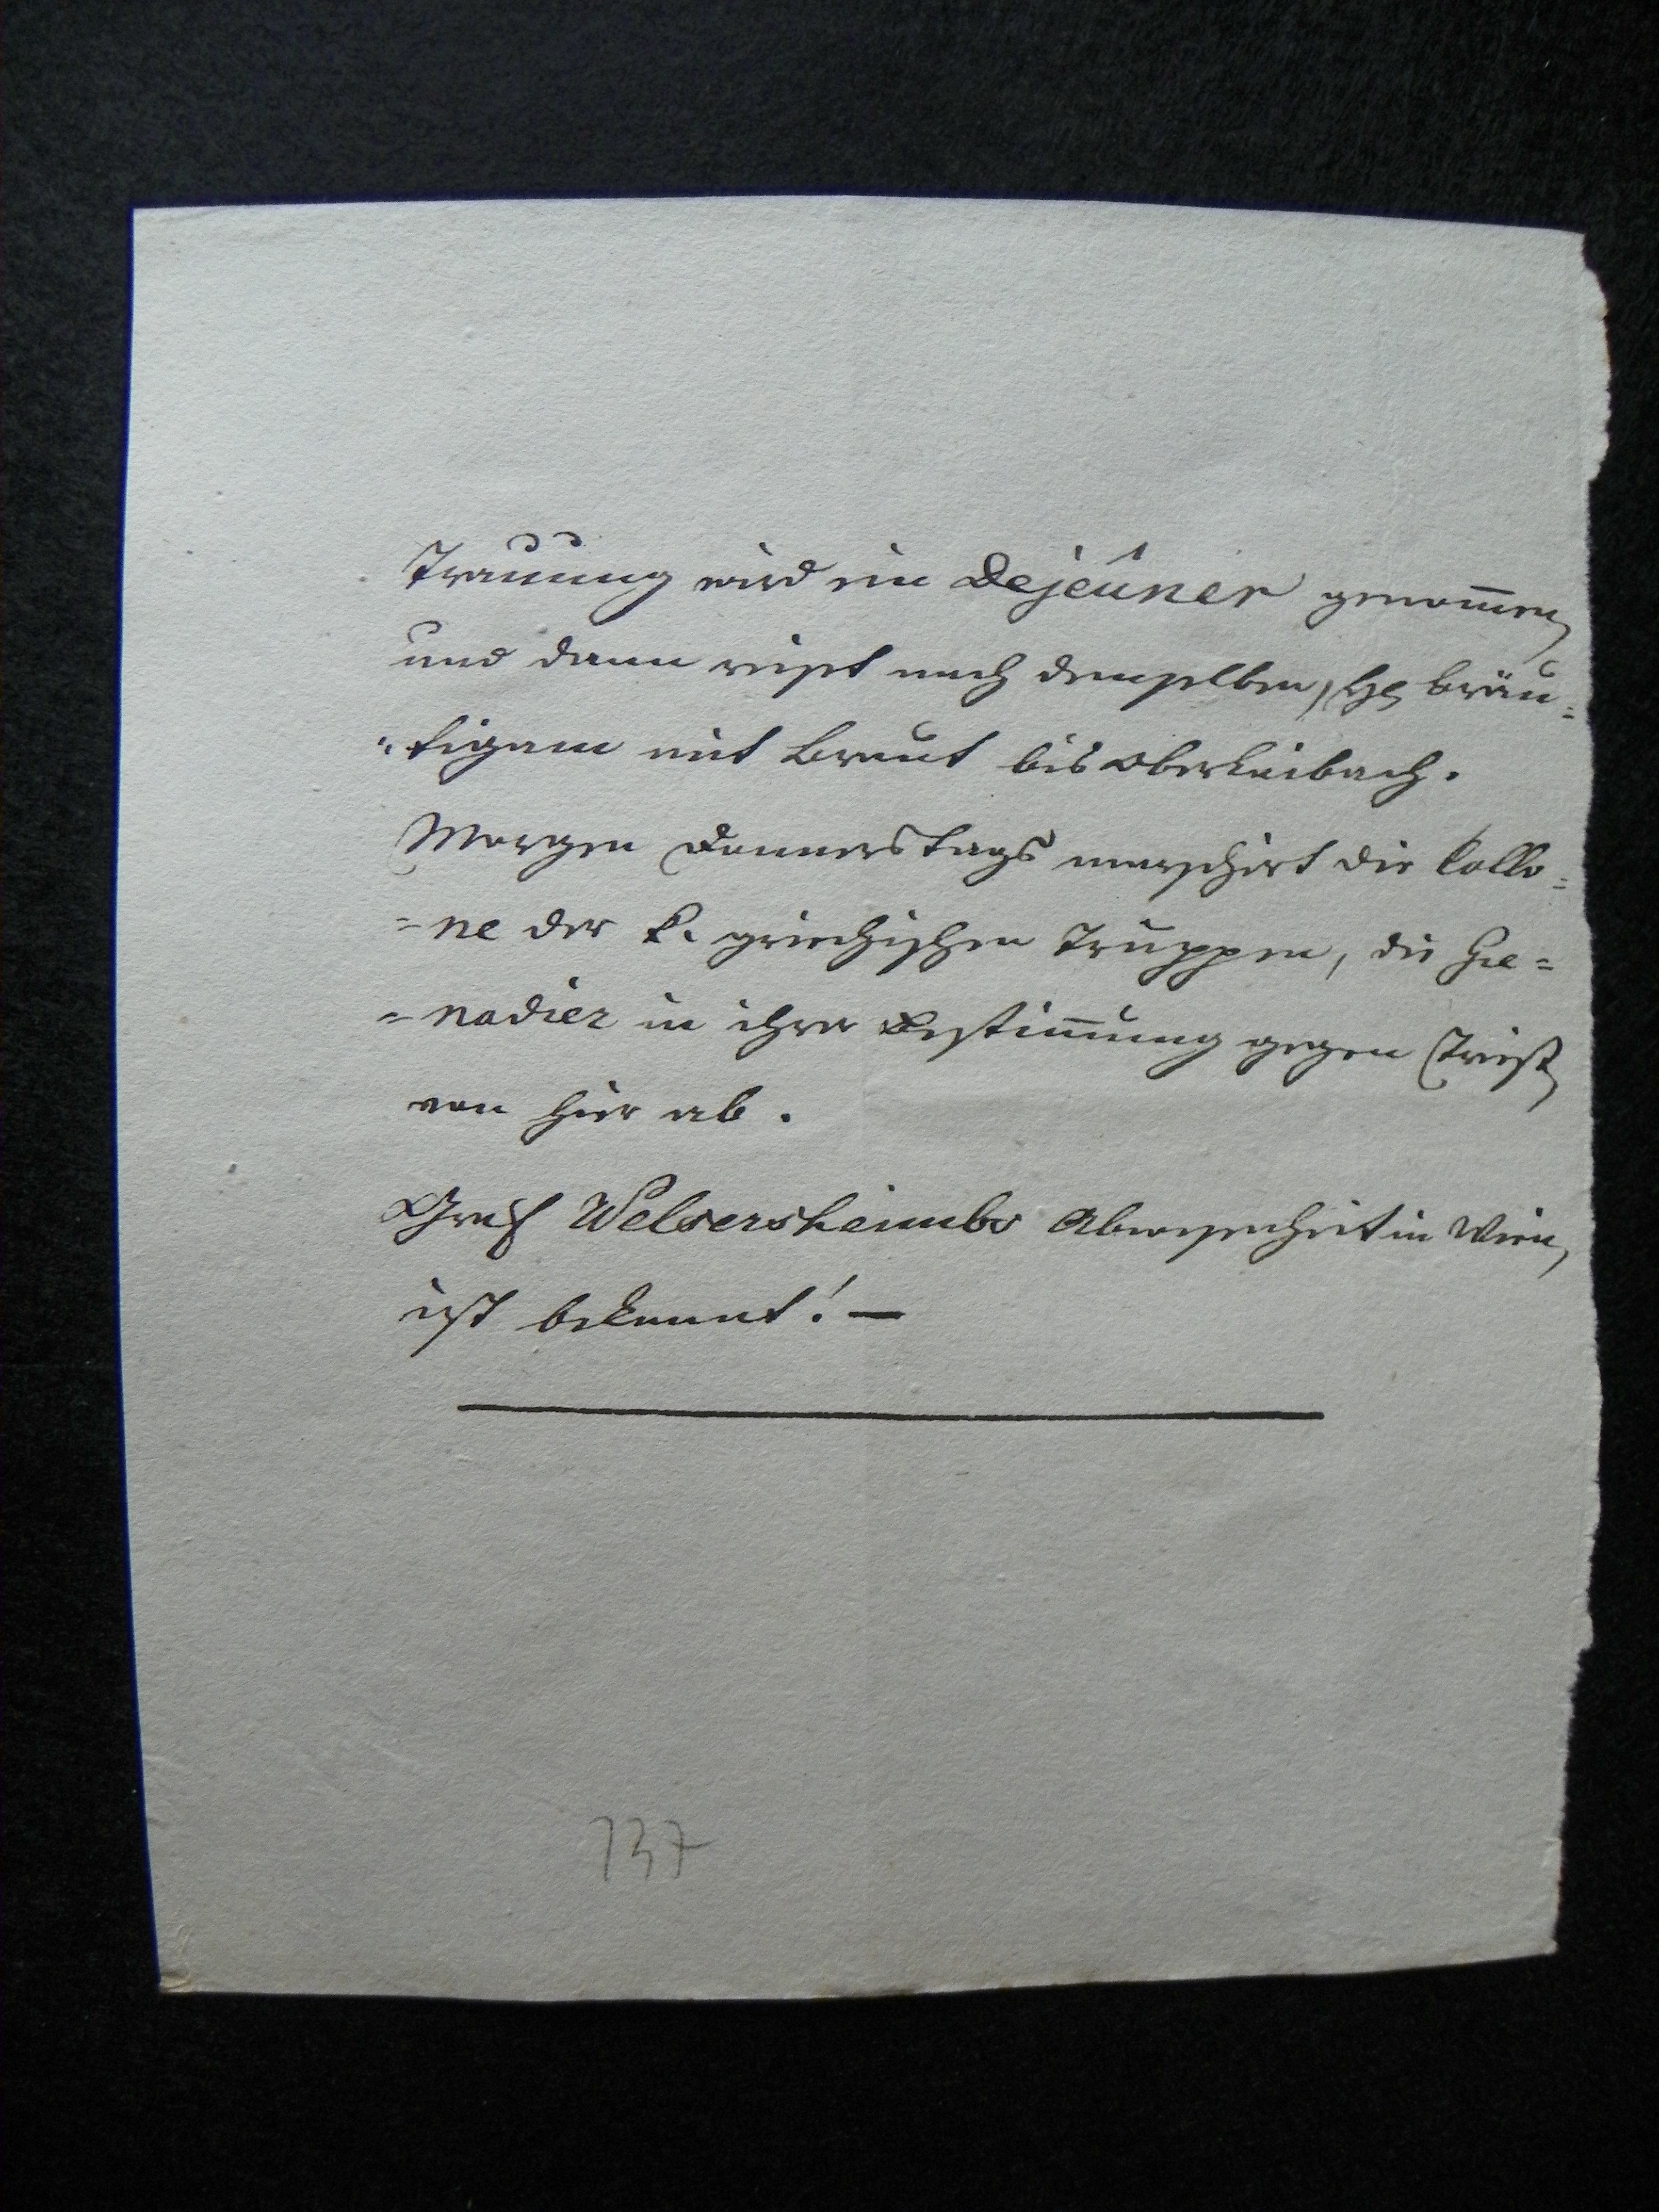 Trauung wird ein Dejeúner genom̅en
und dann reist nach demselben, H. Bräu=
"tigam mit Braut bis Oberlaibach.
Morgen Donnerstags marschirt die Collo=
=ne der k. griechischen Truppen, die Gre=
=nadier in ihrer Bestim̅ung gegen Triest
von hier ab.
Graf Welsersheimbs Abwesenheit in Wien,
ist bekannt! —
737